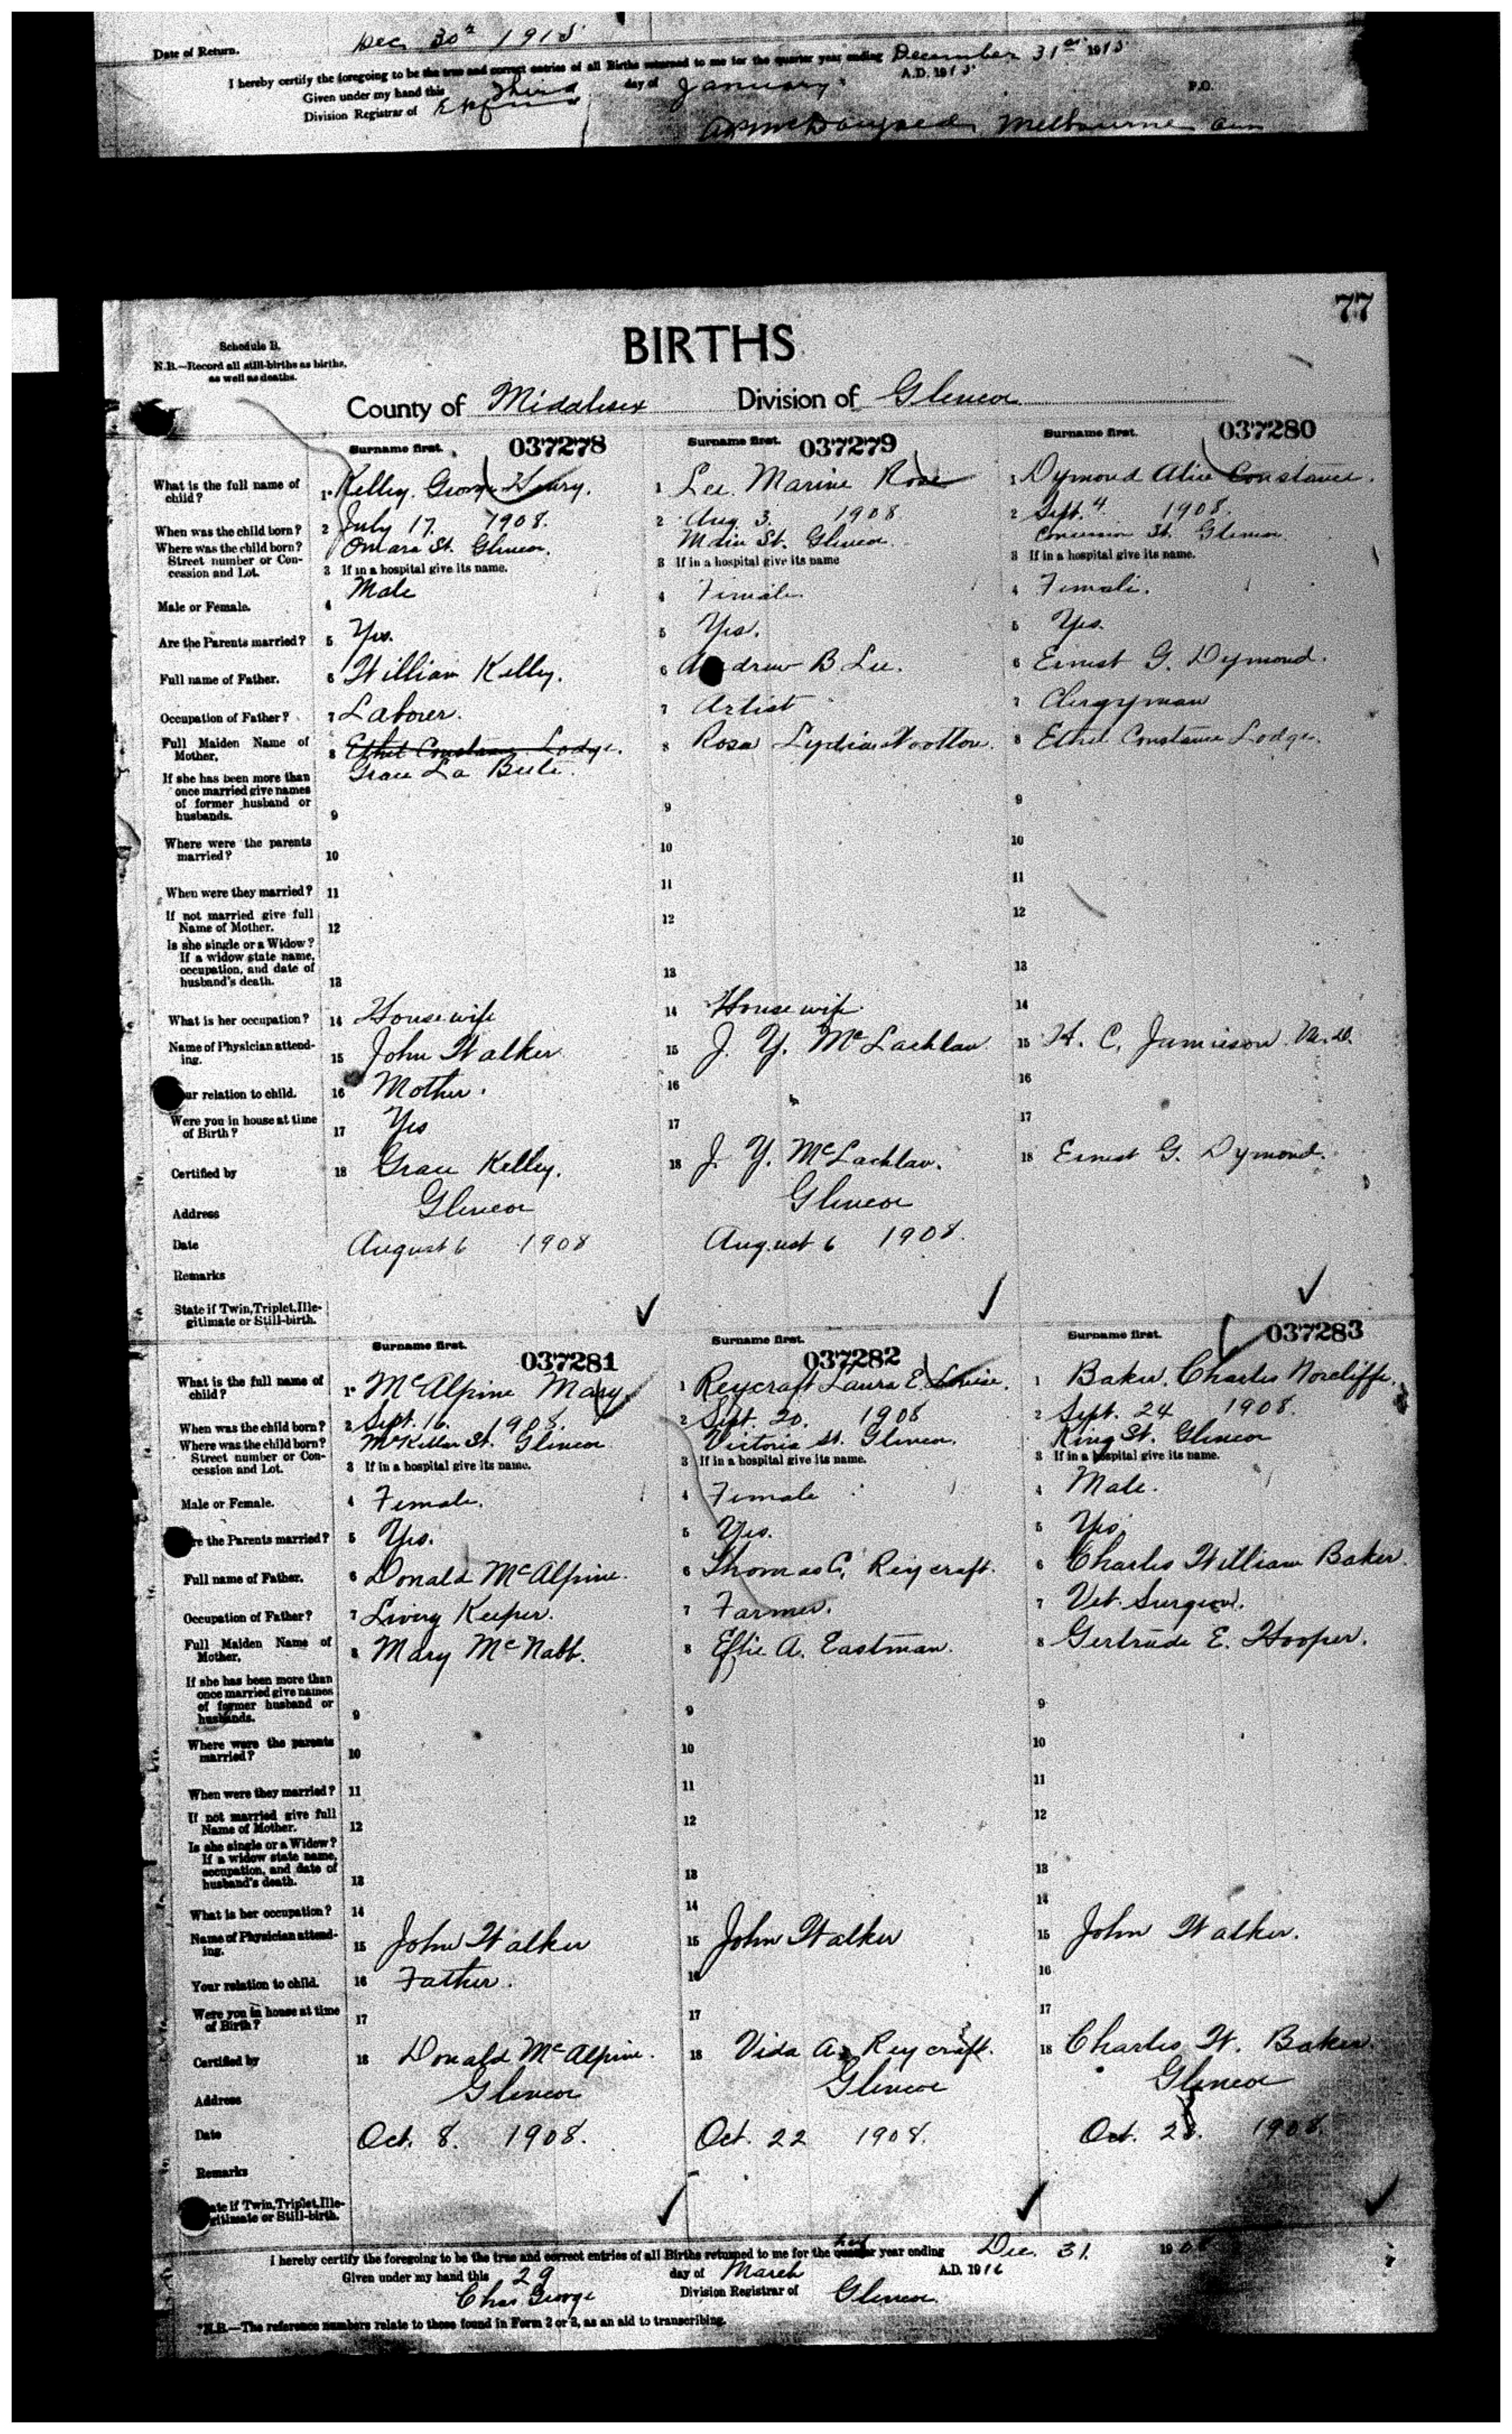 Date of Return. Dec. 30th 1915
I hereby certify the foregoing to be the true and correct entries of all Births returned to me for the quarter year ending December 31st 1915
Given under my hand this Third day of January A.D. 191
Division Registrar of P.O.
Melbourne
77
Schedule B.
N.B.—Record all still-births as births,
as well as deaths.
BIRTHS
County of Middlesex Division of Glencoe
Surname first. 037278 Surname first. 037279 Surname first. 037280
What is the full name of child? 1 Kelley. George Henry. 1 Lee. Marine Rose 1 Dymond Alice Constance.
When was the child born? 2 July 17. 1908. 2 Aug. 3. 1908 2 Sept. 4 1908.
Where was the child born? Omara St. Glencoe. Main St. Glencoe. Concession St. Glencoe.
Street number or Concession and Lot. 3 If in a hospital give its name. 3 If in a hospital give its name 3 If in a hospital give its name.
Male or Female. 4 Male 4 Female. 4 Female.
Are the Parents married? 5 Yes. 5 Yes. 5 Yes.
Full name of Father. 6 William Kelley. 6 Andrew B Lee. 6 Ernest G. Dymond.
Occupation of Father? 7 Laborer. 7 Artist 7 Clergyman
Full Maiden Name of Mother. 8 Ethel Constance Lodge. 8 Rosa Lydia Wootton. 8 Ethel Constance Lodge.
Grace La Bute.
If she has been more than once married give names of former husband or husbands. 9 9 9
Where were the parents married? 10 10 10
When were they married? 11 11 11
If not married give full Name of Mother. 12 12 12
Is she single or a Widow? If a widow state name, occupation, and date of husband's death. 13 13 13
What is her occupation? 14 Housewife 14 Housewife 14
Name of Physician attending. 15 John Walker 15 J. Y. McLachlan 15 H. C. Jamieson M.D.
ur relation to child. 16 Mother. 16 16
Were you in house at time of Birth? 17 Yes 17 17
Certified by 18 Grace Kelley. 18 J. Y. McLachlan. 18 Ernest G. Dymond.
Address Glencoe Glencoe
Date August 6 1908 August 6 1908.
Remarks
State if Twin, Triplet, Illegitimate or Still-birth.
Surname first. 037281 Surname first. 037282 Surname first. 037283
What is the full name of child? 1 McAlpine Mary 1 Reycraft Laura E. Louise. 1 Baker. Charles Norcliffe.
When was the child born? 2 Sept. 16. 1908. 2 Sept. 20. 1908 2 Sept. 24 1908.
Where was the child born? McKellar St. Glencoe Victoria St. Glencoe. King St. Glencoe
Street number or Concession and Lot. 3 If in a hospital give its name. 3 If in a hospital give its name. 3 If in a hospital give its name.
Male or Female. 4 Female. 4 Female 4 Male.
re the Parents married? 5 Yes. 5 Yes. 5 Yes
Full name of Father. 6 Donald McAlpine. 6 Thomas G. Reycraft. 6 Charles William Baker.
Occupation of Father? 7 Livery Keeper. 7 Farmer. 7 Vet. Surgeon.
Full Maiden Name of Mother. 8 Mary McNabb. 8 Effie A. Eastman. 8 Gertrude E. Hooper.
If she has been more than once married give names of former husband or husbands. 9 9 9
Where were the parents married? 10 10 10
When were they married? 11 11 11
If not married give full Name of Mother. 12 12 12
Is she single or a Widow? If a widow state name, occupation, and date of husband's death. 13 13 13
What is her occupation? 14 14 14
Name of Physician attending. 15 John Walker 15 John Walker 15 John Walker.
Your relation to child. 16 Father. 16 16
Were you in house at time of Birth? 17 17 17
Certified by 18 Donald McAlpine. 18 Vida A. Reycraft. 18 Charles W. Baker.
Address Glencoe Glencoe Glencoe
Date Oct. 8. 1908. Oct. 22 1908. Oct. 28. 1908.
Remarks
ate if Twin, Triplet, Illegitimate or Still-birth.
I hereby certify the foregoing to be the true and correct entries of all Births returned to me for the quarter half year ending Dec. 31. 1908
Given under my hand this 29 day of March A.D. 1916
Chas George Division Registrar of Glencoe.
*N.B.—The reference numbers relate to those found in Form 2 or 3, as an aid to transcribing.